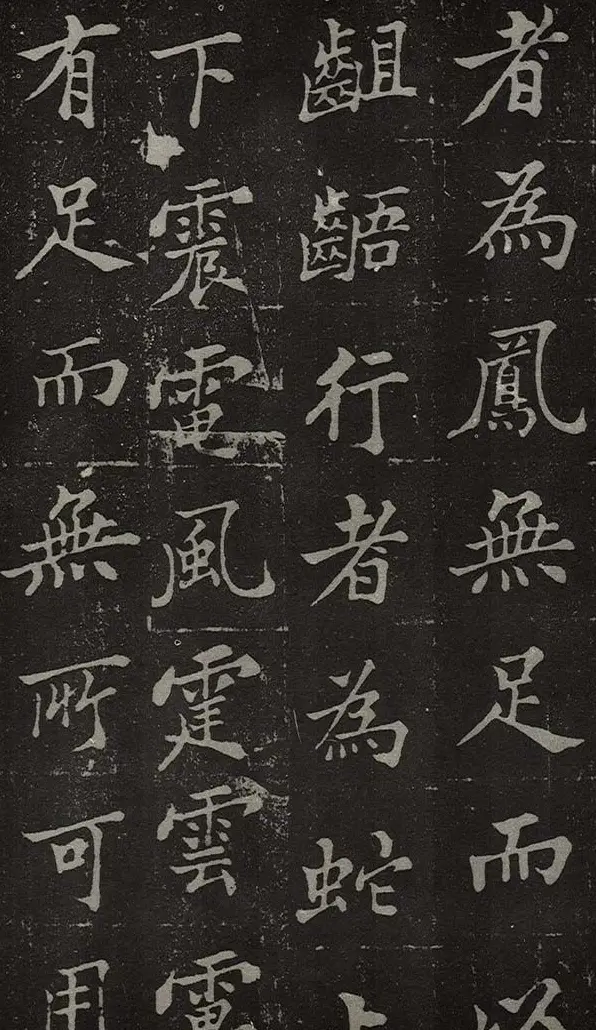 者為鳳無足而
齟齬行者為蛇
下震電風霆雲
有足而無所可用